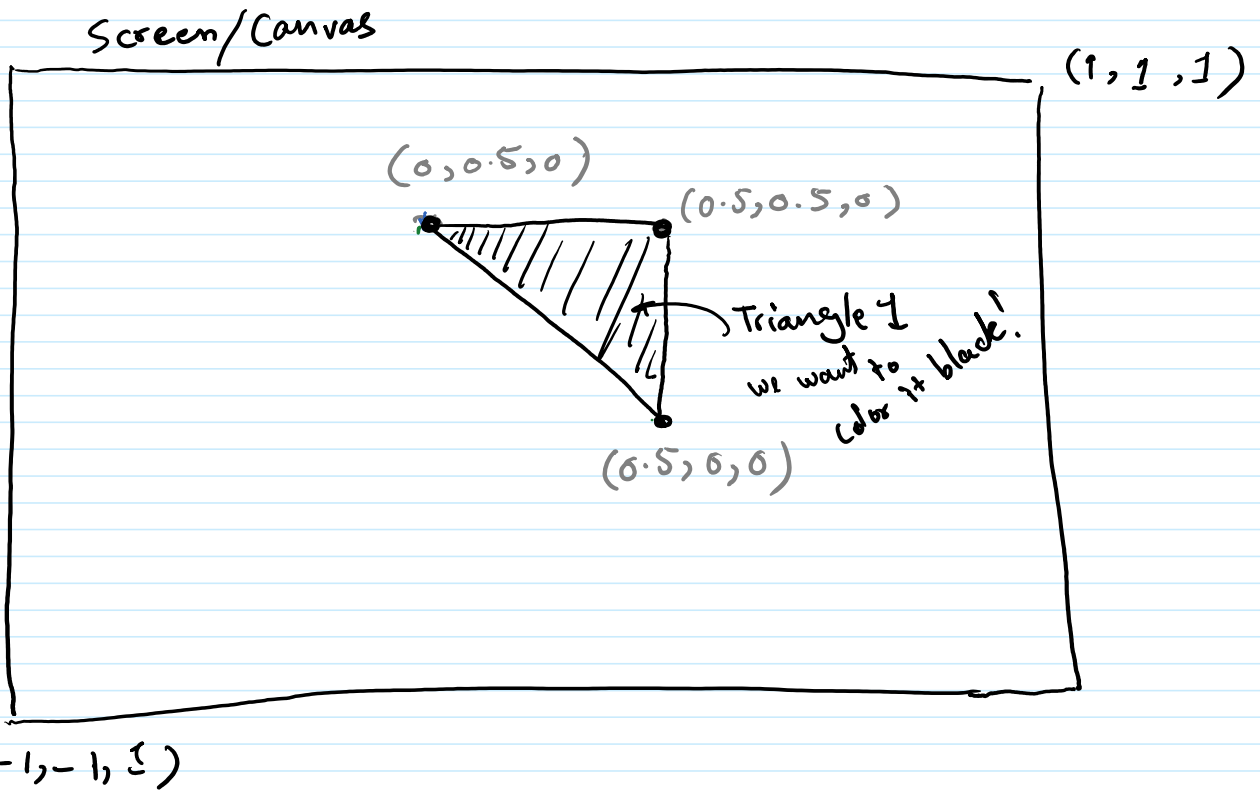 Screen/Canvas
(1, 1, 1)
(0, 0.5, 0)
(0.5, 0.5, 0)
Triangle 1
we want to
color it black!
(0.5, 0, 0)
-1, -1, 1)